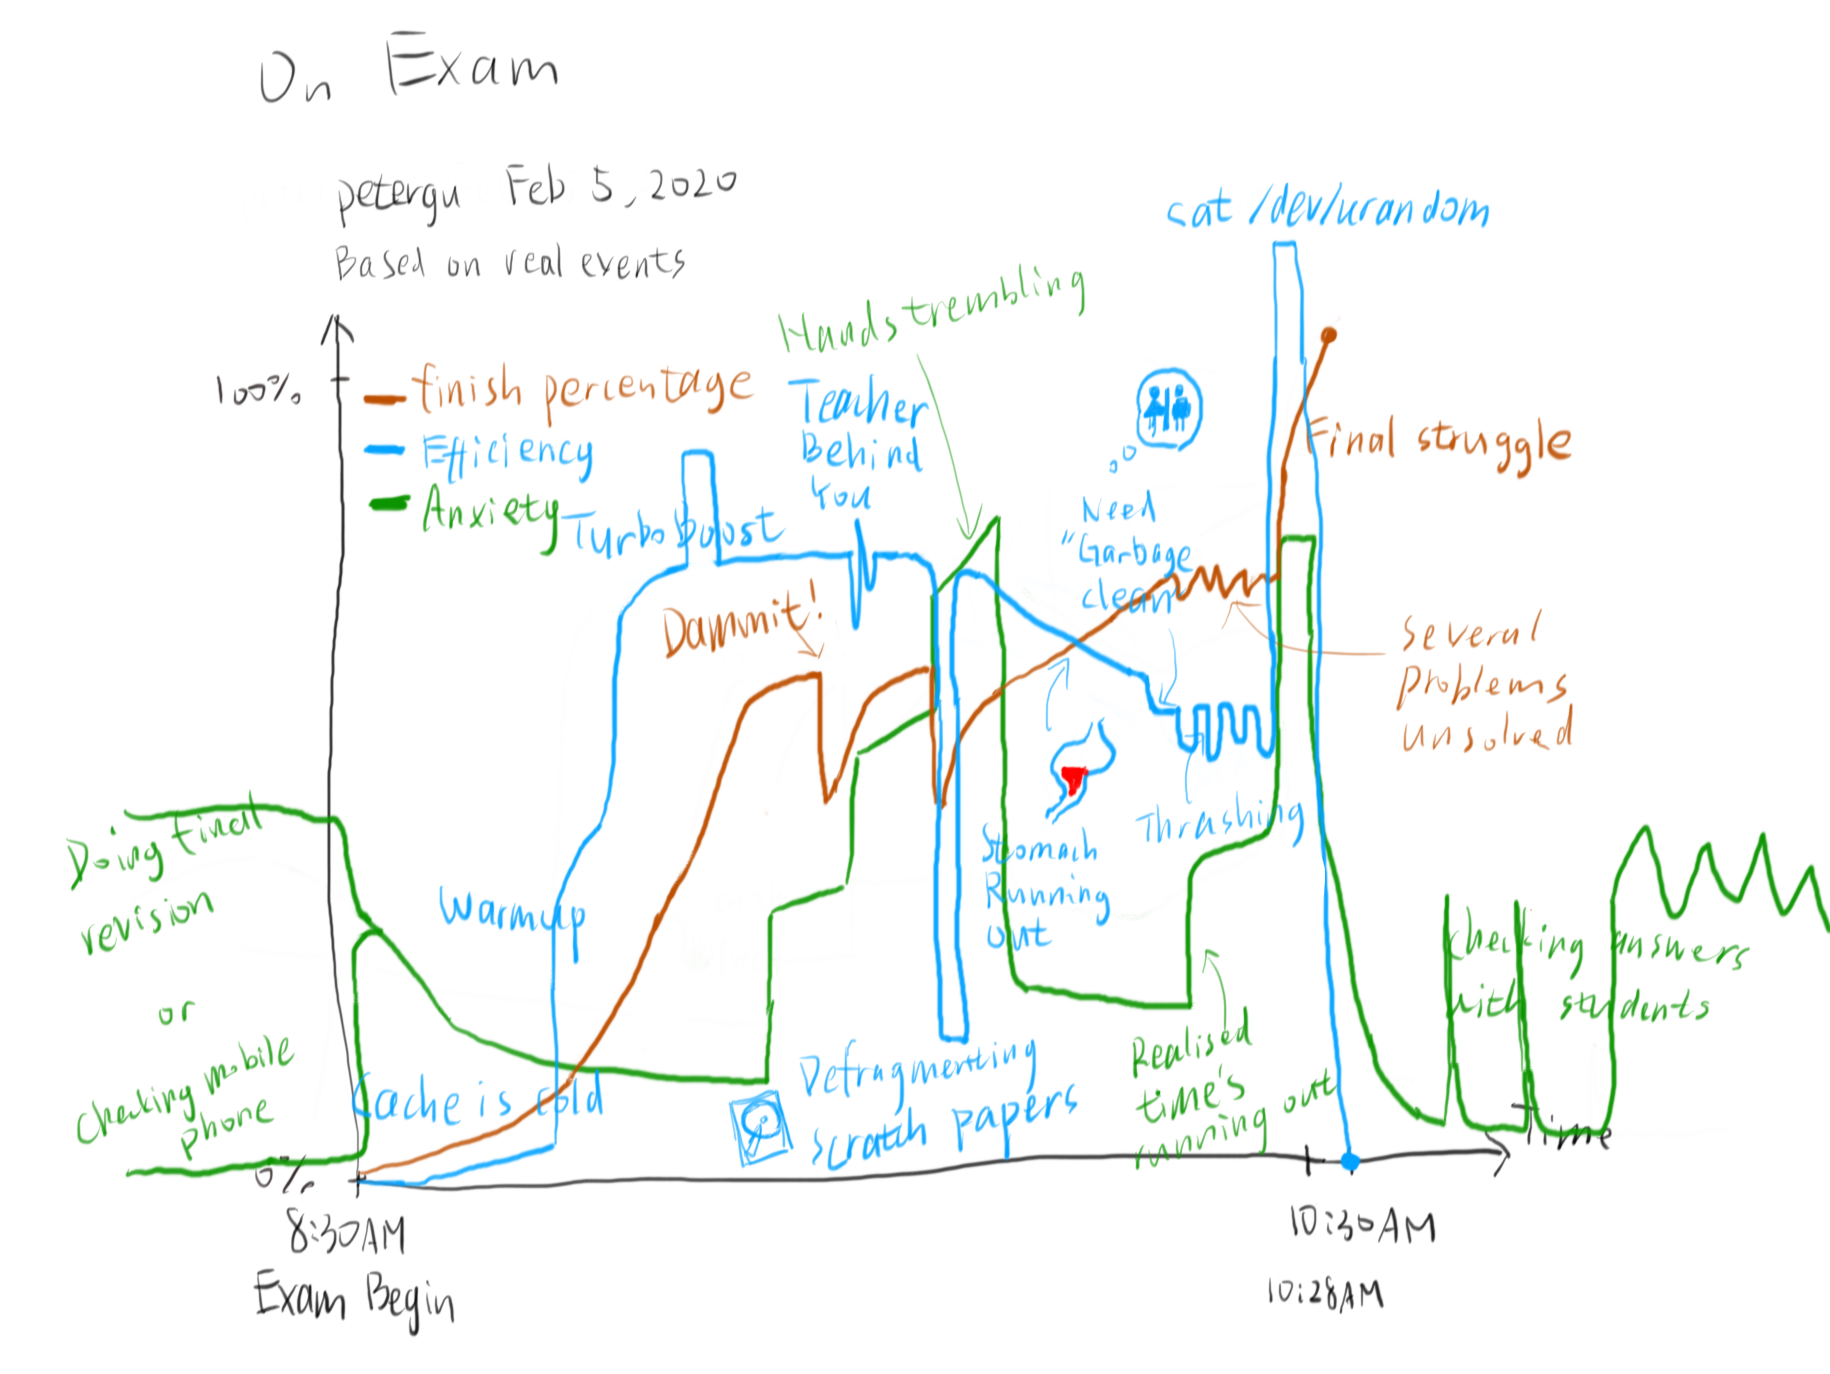 On Exam
petergu Feb 5, 2020
Based on real events
100%
finish percentage
Efficiency
Anxiety
Turbo Boost
Hands trembling
Teacher
Behind
You
cat /dev/urandom
Final struggle
Need
"Garbage
clean"
Dammit!
Several
problems
unsolved
Doing final
revision
or
checking mobile
phone
Warmup
Cache is cold
Stomach
Running
out
Thrashing
Defragmenting
scratch papers
Realised
time's
running out
checking answers
with students
Time
0%
8:30AM
Exam Begin
10:30AM
10:28AM